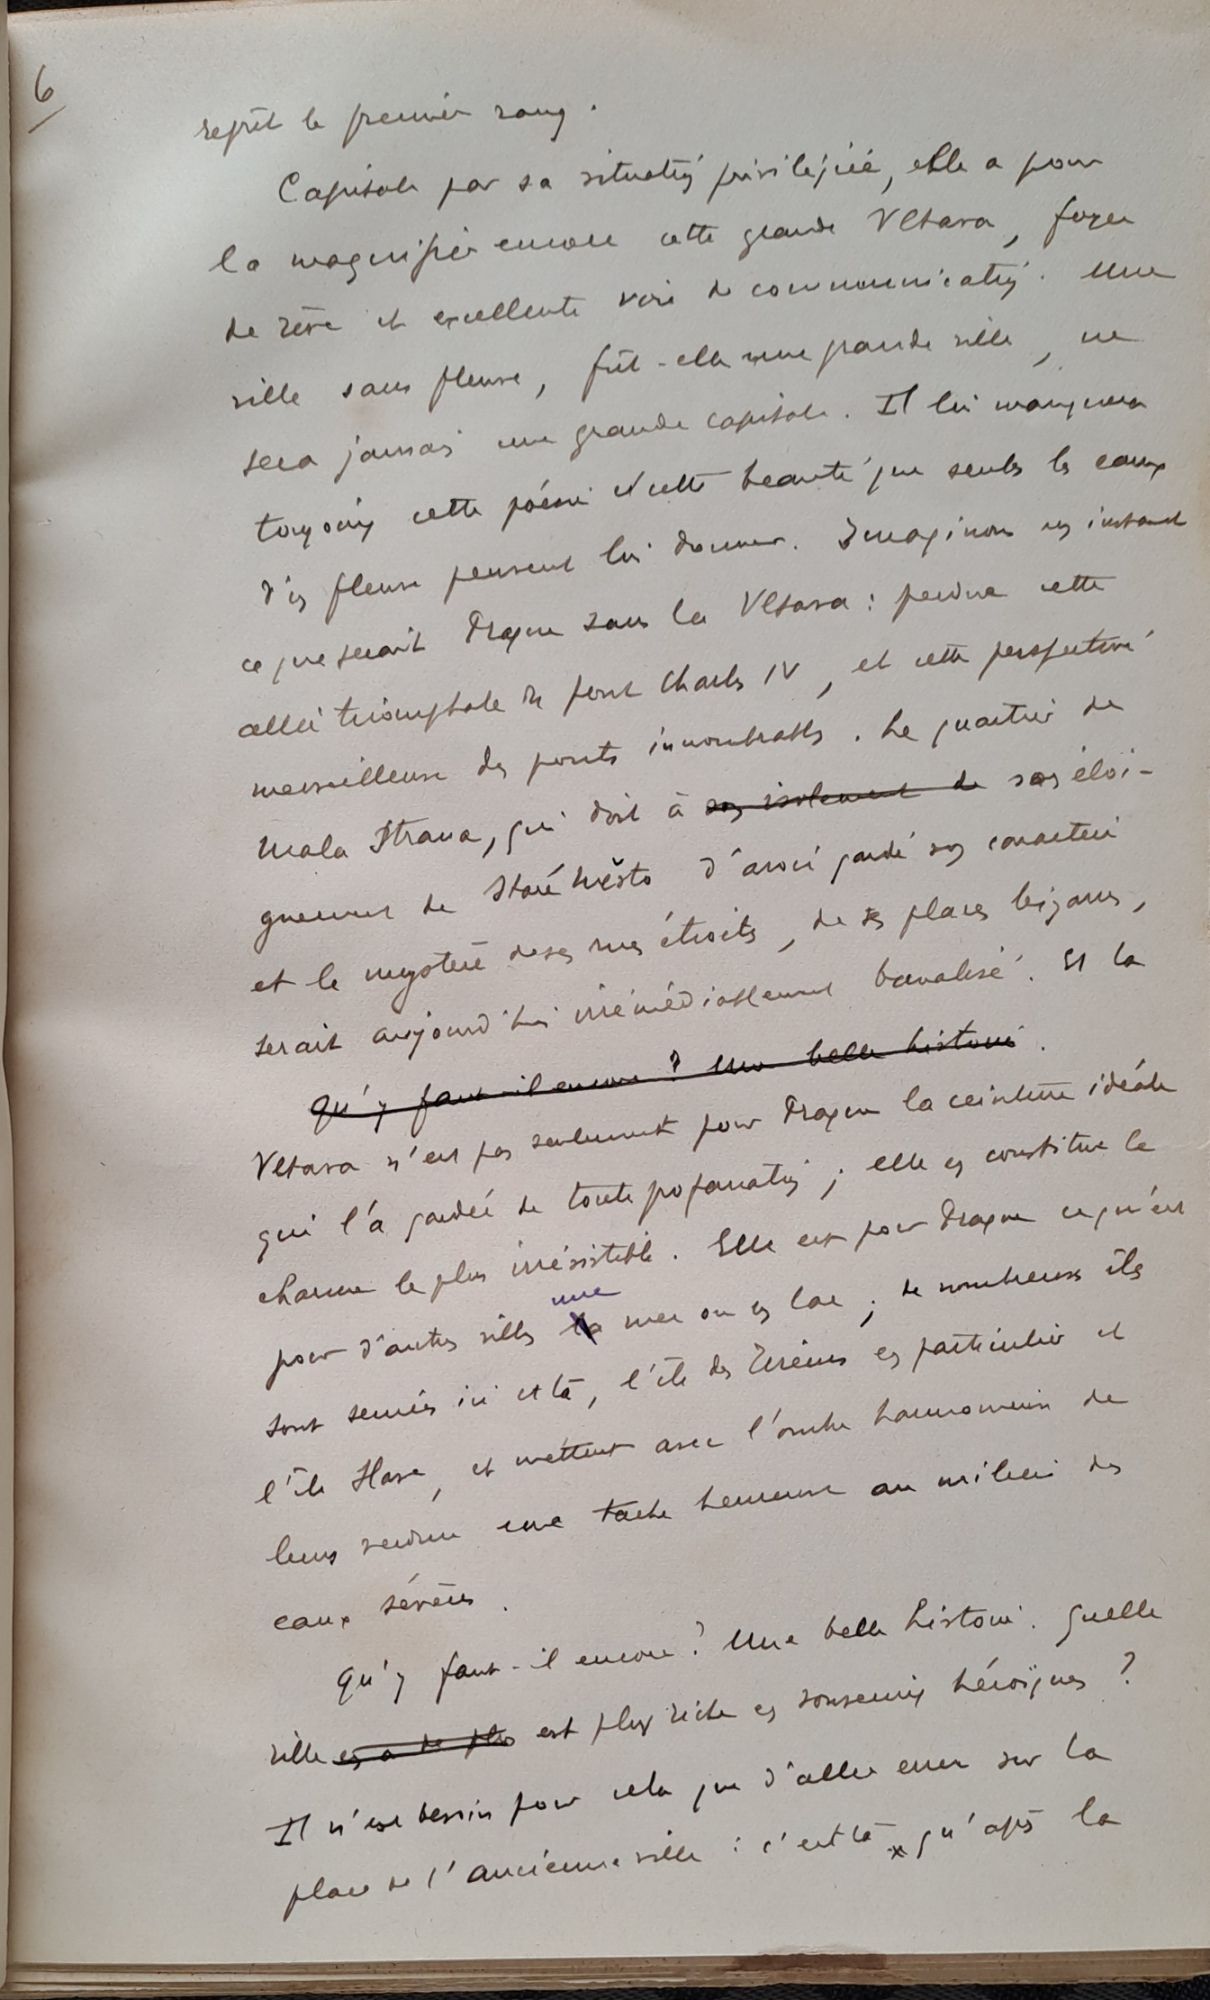 6
reprît le premier rang.
Capitale par sa situation privilégiée, elle a pour
la magnifier encore cette grande Vltava, foyer
de rêve et excellente voie de communication. Une
ville sans fleuve, fût-elle une grande ville, ne
sera jamais une grande capitale. Il lui manquera
toujours cette poésie et cette beauté que seules les eaux
d'un fleuve peuvent lui donner. Imaginons un instant
ce que serait Prague sans la Vltava : perdue cette
allée triomphale du pont Charles IV, et cette perspective
merveilleuse des ponts innombrables. Le quartier de
Mala Strana, qui doit à son isolement de son éloi-
gnement de Staré Město d'avoir gardé son caractère
et le mystère de ses rues étroites, de ses places bizarres,
serait aujourd'hui irrémédiablement banalisé. Et la
Qu'y faut-il encore ? Une belle histoire.
Vltava n'est pas seulement pour Prague la ceinture idéale
qui l'a gardée de toute profanation ; elle en constitue le
charme le plus irrésistible. Elle est pour Prague ce qu'est
une
pour d'autres villes la mer ou un lac ; de nombreuses îles
sont semées ici et là, l'île des en particulier et
l'île Slave, et mettent avec l'ombre harmonieuse de
leurs verdure une tache heureuse au milieu des
eaux sévères.
Qu'y faut-il encore ? Une belle histoire. Quelle
ville en a de plus est plus riche en souvenirs héroïques ?
Il n'est besoin pour cela que d'aller errer sur la
place de l'ancienne ville : c'est là x qu'après la